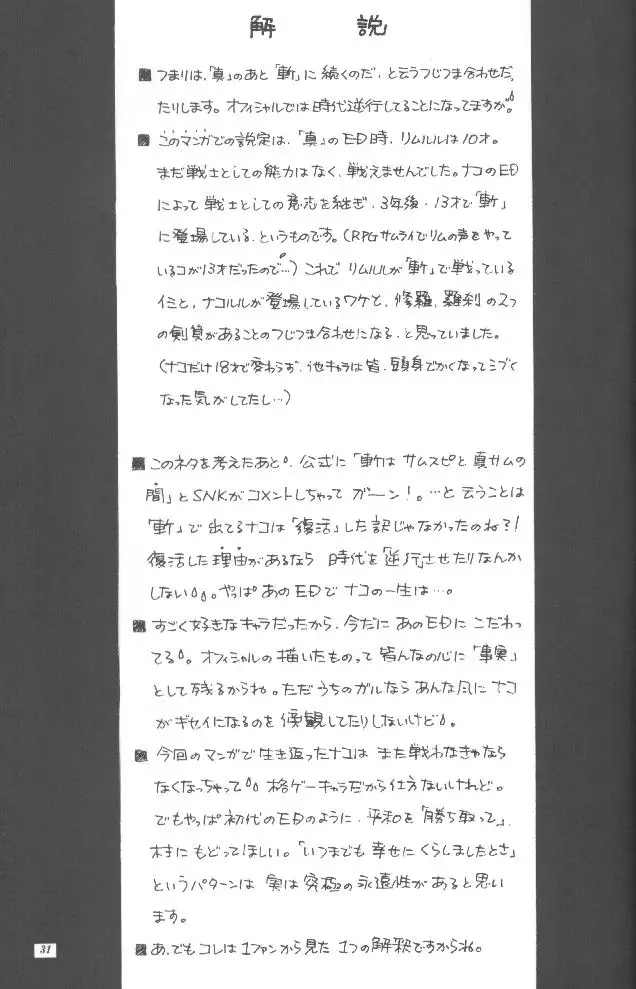 解 説
■つまりは、「真」のあと「斬」に続くのだ、と云うつじつま合わせだ
たりします。オフィシャルでは時代逆行してることになってますが。
■このマンガでの設定は、「真」のED時、リムルルは10才。
まだ戦士としての能力はなく、戦えませんでした。ナコのED
によって戦士としての意志を継ぎ、3年後・13才で「斬」
に登場している、というものです。(RPGサムライでリムの声をやって
いるコが13才だったので…)これで リムルルが「斬」で戦っている
イミと、ナコルルが登場しているワケと、修羅、羅刹の2つ
の剣質があることのつじつま合わせになる、と思っていました。
(ナコだけ18才で変わらず、他キャラは皆、頭身でかくなってシブく
なった気がしてたし…)
■このネタを考えたあと、公式に「斬はサムスピと真サムの
間」とSNKがコメントしちゃって ガーン!。…と云うことは
「斬」で出てるナコは「復活」した訳じゃなかったのね?!
復活した理由があるなら 時代を「逆行」させたりなんか
しない。やっぱあのEDでナコの一生は…。
■すごく好きなキャラだったから、今だに あのEDに こだわっ
てる。オフィシャルの描いたものって 皆んなの心に「事実」
として残るからね。ただうちのガルなら あんな風に ナコ
がギセイになるのを 傍観してたりしないけど。
■今回のマンガで生き返ったナコは また戦わなきゃなら
なくなっちゃって 格ゲーキャラだから仕方ないけれど。
でもやっぱ初代のEDのように、平和を「勝ち取って」、
村にもどってほしい。「いつまでも 幸せにくらしましたとさ」
というパターンは 実は究極の永遠性があると思い
ます。
■あ、でもコレは1ファンから見た 1つの解釈ですからね。
31